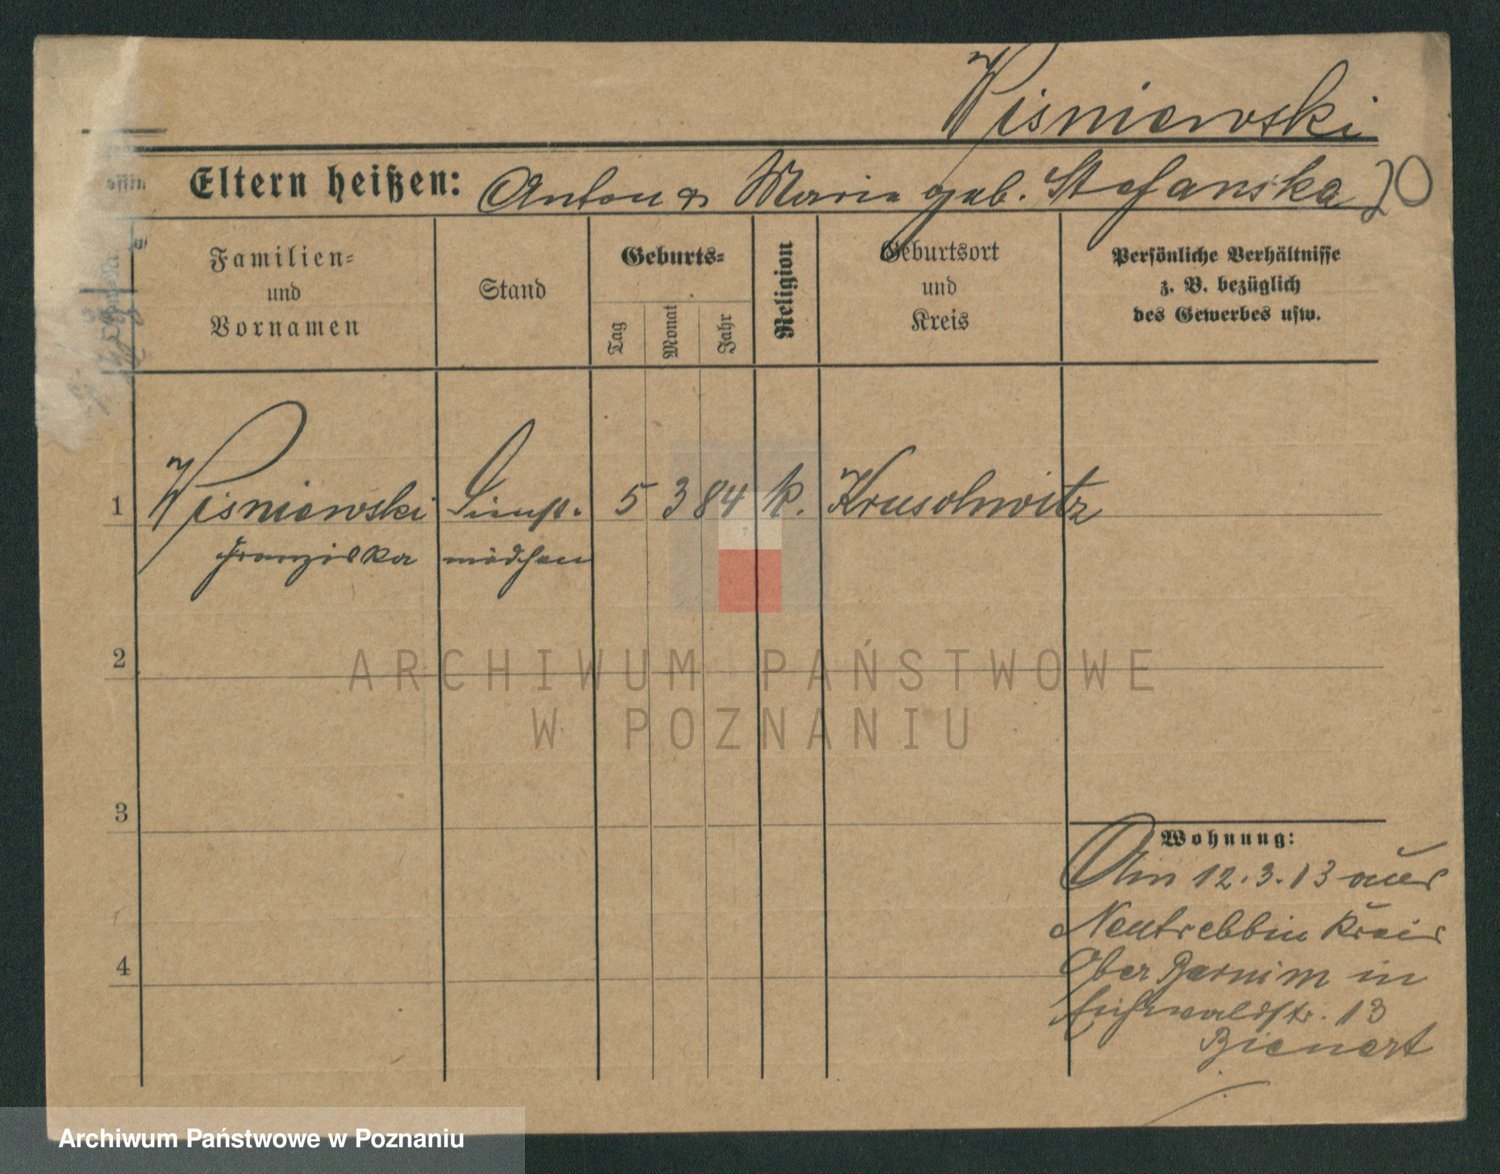 Wisniewski
Eltern heißen: Anton & Marie geb. Stefanska 20
Familien-
und
Vornamen
Stand
Geburts-
Tag
Monat
Jahr
Religion
Geburtsort
und
Kreis
Persönliche Verhältnisse
z. B. bezüglich
des Gewerbes usw.
1 Wisniewski Dienst- 5 3 84 k. Kruschwitz
Franziska mädchen
2
3
4
Wohnung:
Am 12.3.13 aus
Neutrebbin Kreis
Ober Barnim in
13
Bienert
ARCHIWUM PAŃSTWOWE
W POZNANIU
Archiwum Państwowe w Poznaniu